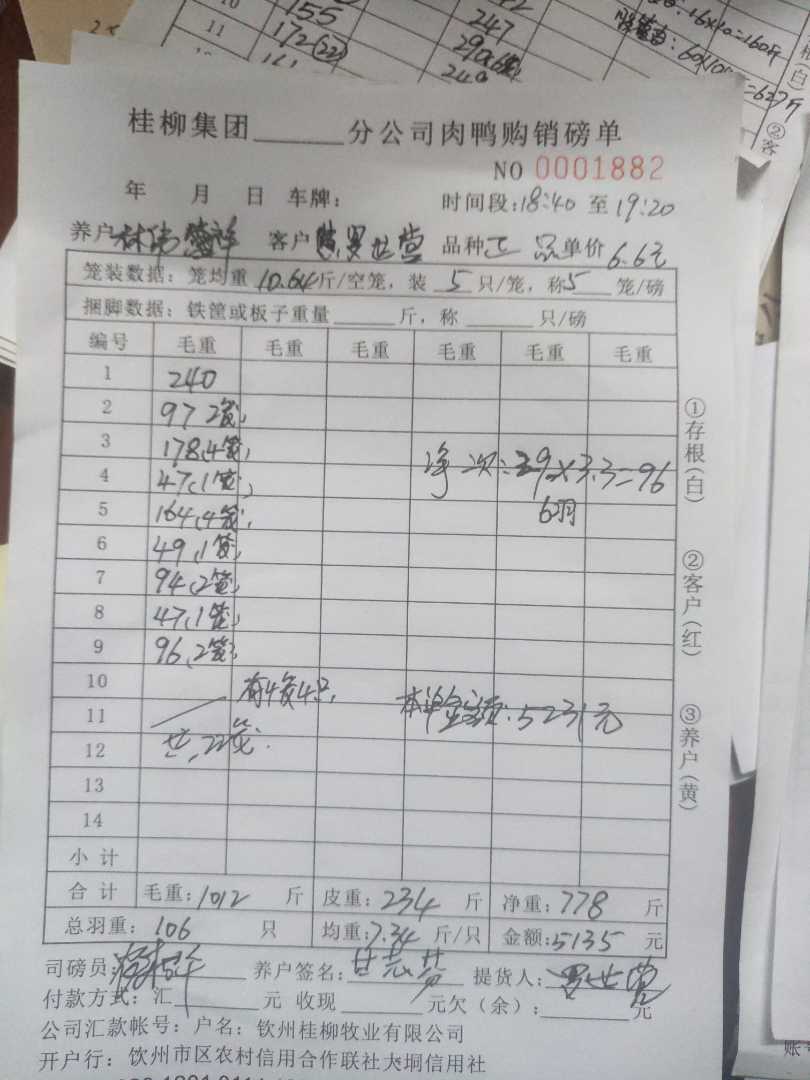 155
247
11
172(22)
290
249
16×10=160斤
60×10
=627斤
(白)
②客
桂柳集团______分公司肉鸭购销磅单
NO 0001882
年 月 日 车牌: 时间段:18:40 至 19:20
养户 林伟 祥 客户 罗世营 品种 正 品 单价 6.6元
笼装数据: 笼均重 10.64 斤/空笼, 装 5 只/笼, 称 5 笼/磅
捆脚数据: 铁筐或板子重量______斤, 称______只/磅
编号 毛重 毛重 毛重 毛重 毛重 毛重
1 240
2 97 2笼,
3 178,4笼,
4 47,1笼,
5 164,4笼,
6 49,1笼,
7 94,2笼,
8 47,1笼,
9 96,2笼,
净 次:29×3.3=96
6羽
10
有4笼4只,
11
本单金额:5231元
12
共,22笼.
13
14
小 计
合 计 毛重:1012 斤 皮重:234 斤 净重:778 斤
总羽重: 106 只 均重:7.34 斤/只 金额:5135 元
①存根(白)
②客户(红)
③养户(黄)
司磅员: 养户签名: 甘志芬 提货人: 罗世营
付款方式: 汇______元 收现______元欠(余):______元
公司汇款帐号: 户名: 钦州桂柳牧业有限公司
开户行: 钦州市区农村信用合作联社大垌信用社